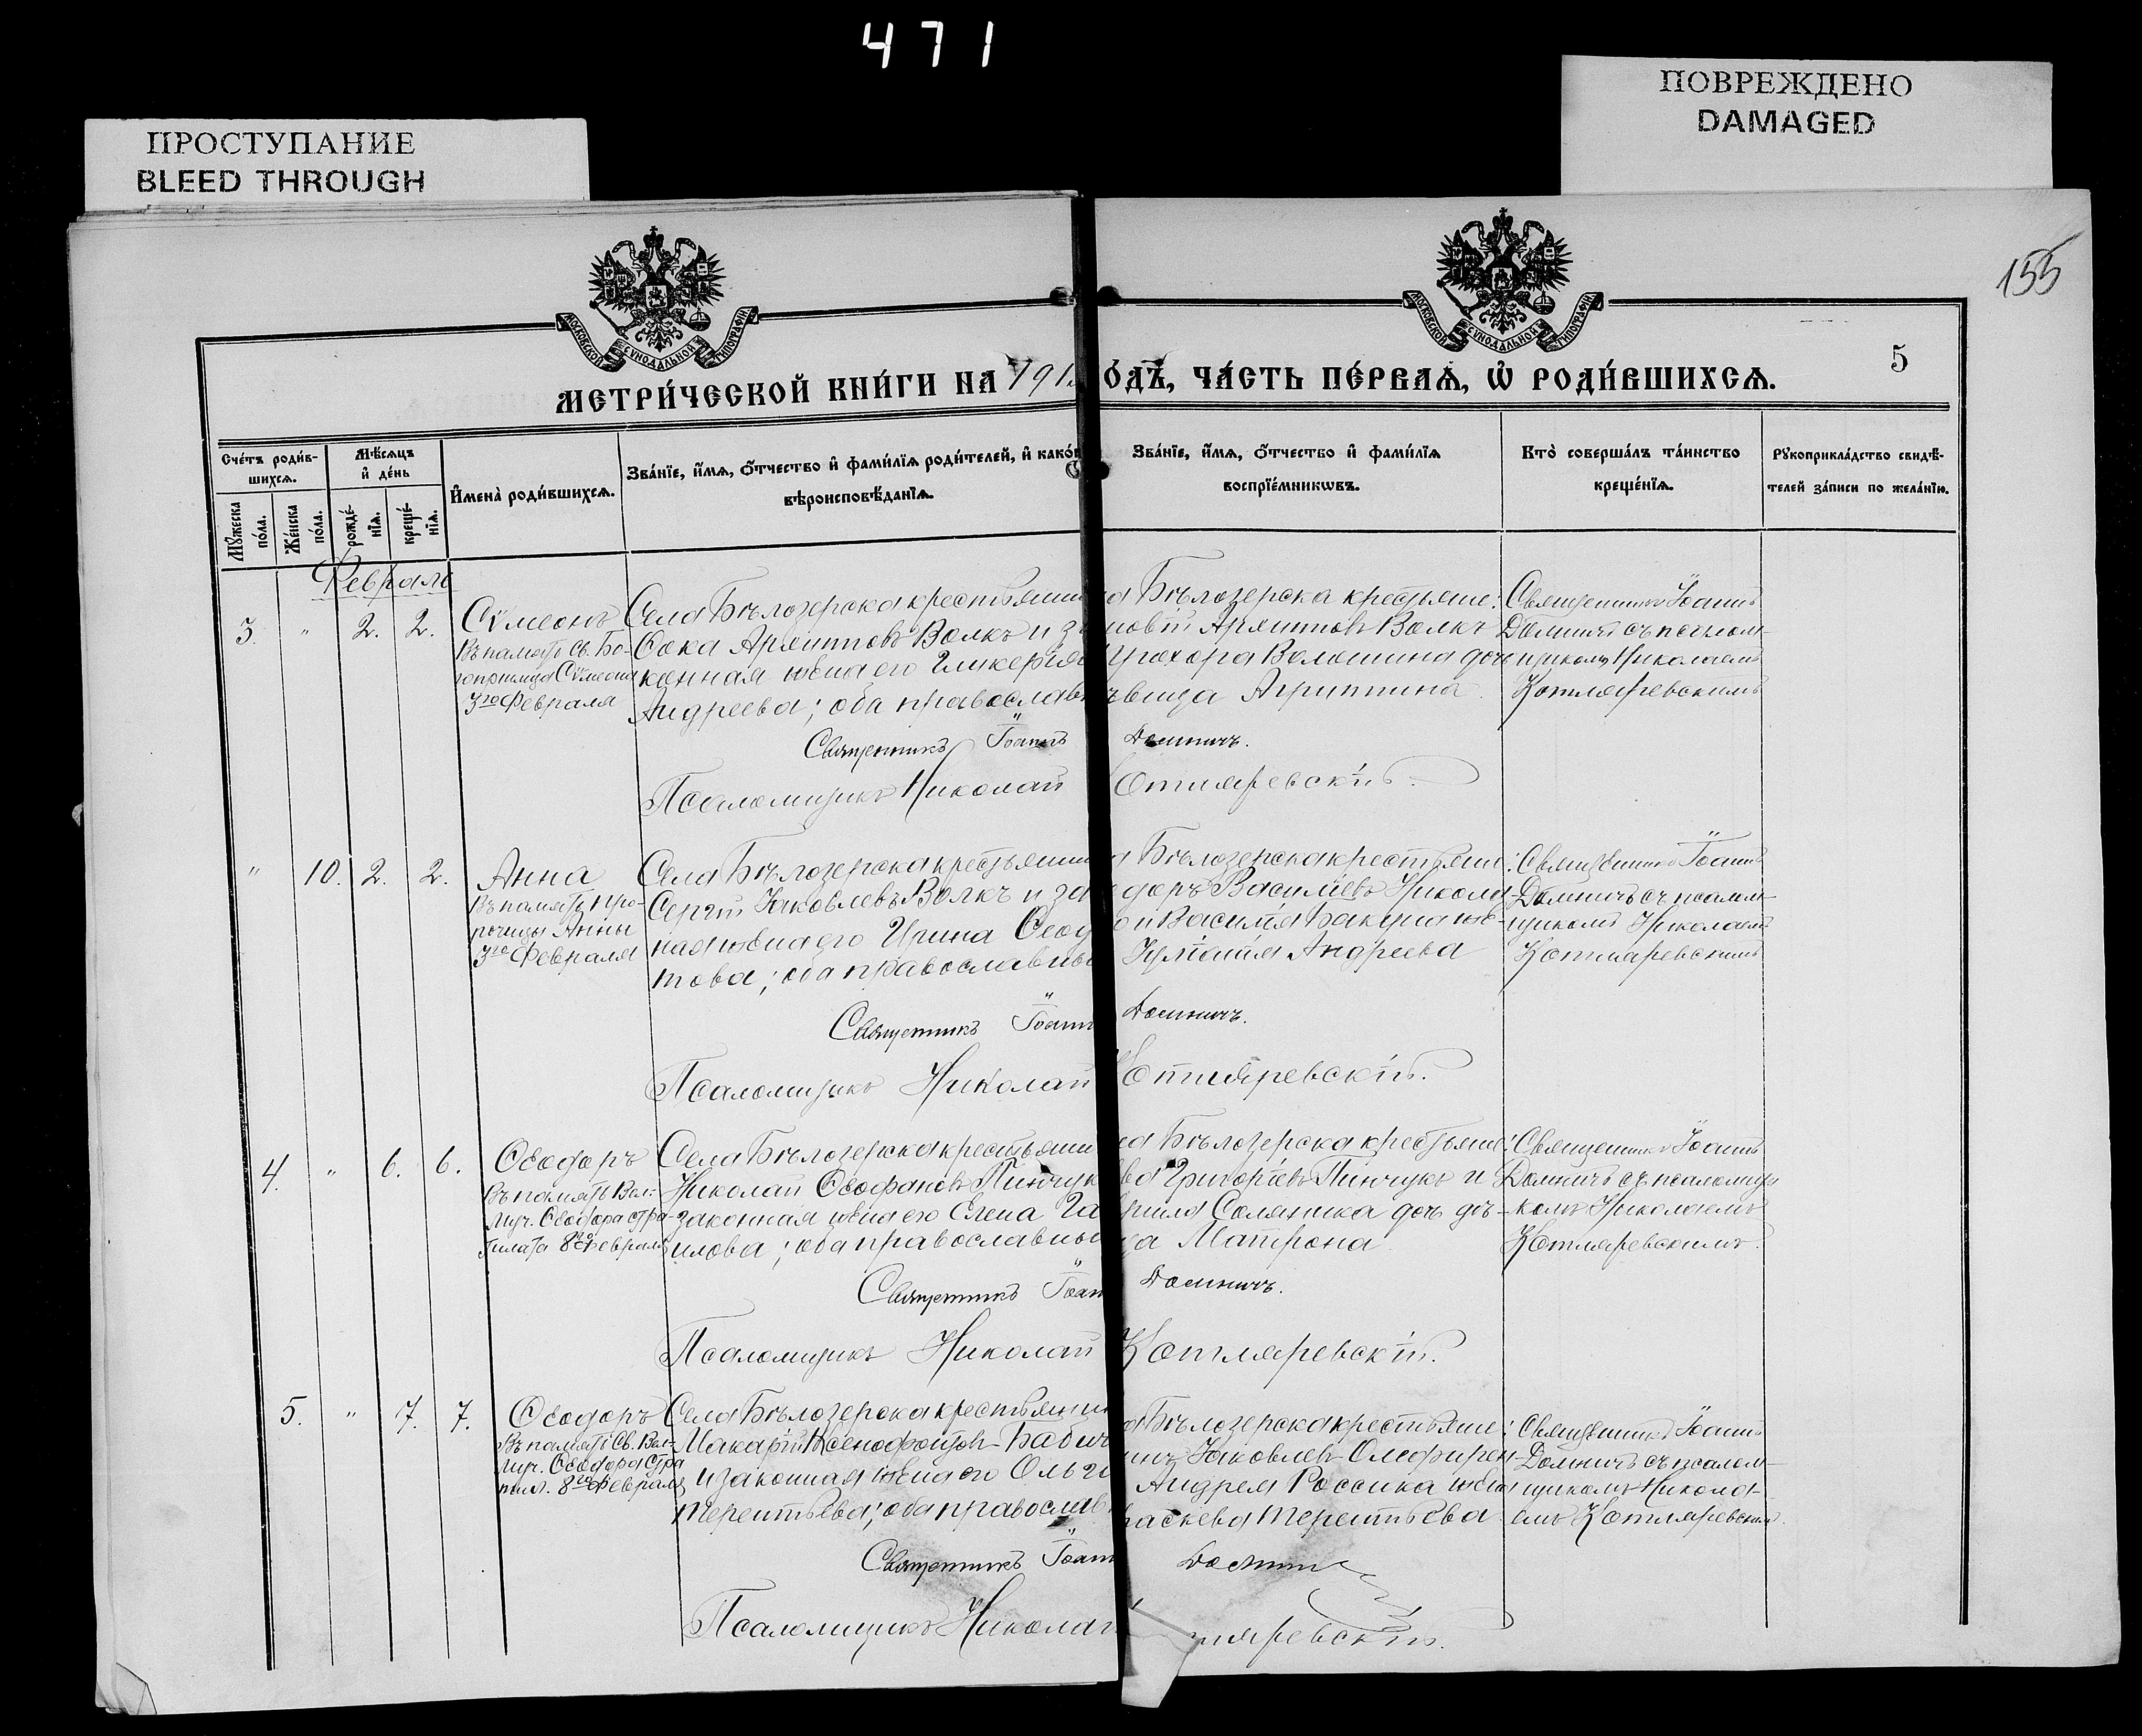 471
ПРОСТУПАНИЕ
BLEED THROUGH
ПОВРЕЖДЕНО
DAMAGED
155
МОСКОВСКОЙ СѴНОДАЛЬНОЙ ТИПОГРАФІИ
МОСКОВСКОЙ СѴНОДАЛЬНОЙ ТИПОГРАФІИ
5
МЕТРИ́ЧЕСКОЙ КНИ́ГИ НА 191
ОДЪ, ЧА́СТЬ ПЕ́РВАѦ, Ѡ҆ РОДИ́ВШИХСѦ.
Сче́тъ роди́в-
шихсѧ.
Мꙋ́жеска
по́ла.
Же́нска
по́ла.
Мѣ́сѧцъ
и҆ де́нь
рожде́-
нїѧ.
креще́-
нїѧ.
И҆мена̀ роди́вшихсѧ.
Зва́нїе, и҆́мѧ, ѻ҆́тчество и҆ фами́лїѧ роди́телей, и҆ како́
вѣроисповѣ́данїѧ.
Зва́нїе, и҆́мѧ, ѻ҆́тчество и҆ фами́лїѧ
воспрїе́мникѡвъ.
Кто̀ соверша́лъ та́инство
креще́нїѧ.
Рꙋкоприкла́дство свидѣ́-
телей за́писи по жела́нїю.
Февраль
3. " 2. 2.
Сѵмеонъ
Въ память Св. Бо-
гопріимца Сѵмеона
3го Февраля
Села Бѣлозерска крестьянин
Сака Архиповъ Волкъ и за
конная жена его Гликерія
Андреева; оба православн
а Бѣлозерска крестьяне:
Архиповъ Волкъ
Прохора Волошина дочь
дѣвица Агриппина
Священникъ Іоаннъ
Доминичъ съ псалом-
щикомъ Николаемъ
Котляревскимъ
Священникъ Іоаннъ Доминичъ.
Псаломщикъ Николай Котляревскій.
" 10. 2. 2.
Анна
Въ память про-
рочицы Анны
3го Февраля
Села Бѣлозерска крестьянин
Сергій Яковлевъ Волкъ и зак
ная жена его Ирина Ѳеод
това; оба православны
а Бѣлозерска крестьяне:
доръ Василіевъ Никола
и Василія Бакума же-
Андреева
Священникъ Іоаннъ
Доминичъ съ псалом-
щикомъ Николаемъ
Котляревскимъ
Священникъ Іоаннъ Доминичъ.
Псаломщикъ Николай Котляревскій.
4. " 6. 6.
Ѳеодоръ
Въ память Вел:
Муч. Ѳеодора Стра-
тилата 8го Февраля
Села Бѣлозерска крестьянин
Николай Ѳеофановъ Пинчук
законная жена его Елена Га
илова; оба православны
ла Бѣлозерска крестьяне:
ва Григоріевъ Пинчукъ и
вріила Соляника дочь дѣ-
ца Матрона
Священникъ Іоаннъ
Доминичъ съ псаломщи
комъ Николаемъ
Котляревскимъ.
Священникъ Іоанн Доминичъ.
Псаломщикъ Николай Котляревскій.
5. " 7. 7.
Ѳеодоръ
Въ память Св. Вел-
Муч. Ѳеодора Стра
тил. 8го Февраля
Села Бѣлозерска крестьянин
Макарій Ксенофонтовъ Бабич
и законная жена его Ольга
Терентьева; оба православ
а Бѣлозерска крестьяне:
Яковлевъ Олефирен
Андрея Россика жена
раскева Терентьева
Священникъ Іоаннъ
Доминичъ съ псалом-
щикомъ Никола-
емъ Котляревским.
Священникъ Іоанн Доминич
Псаломщикъ Николай тляревскій.